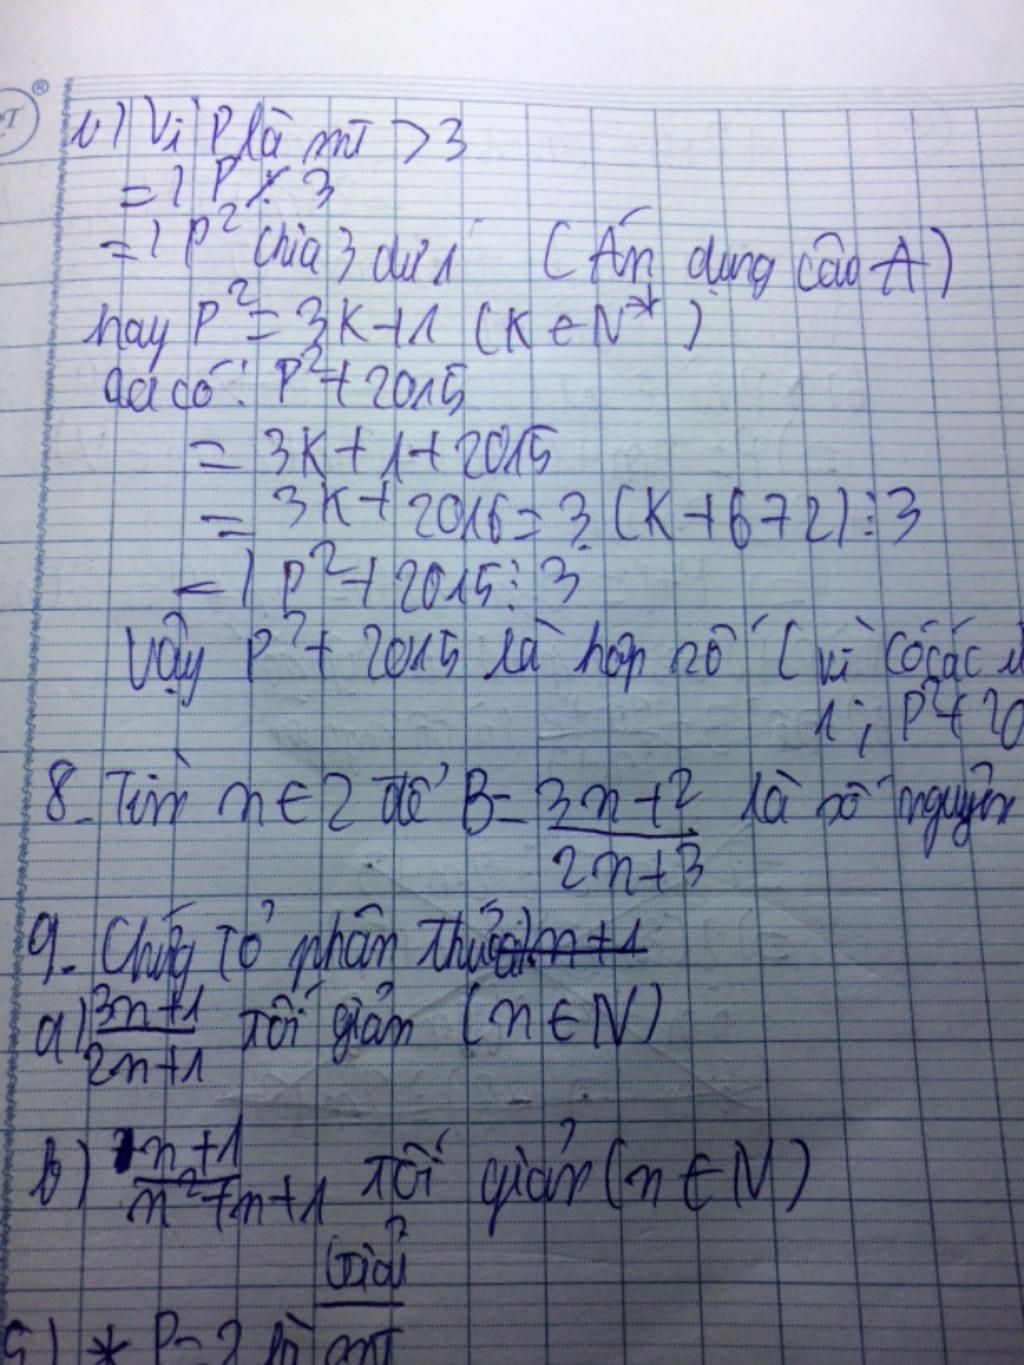 b) Vì P là nt > 3
=> P ⋮̸ 3
=> P² chia 3 dư 1 (Áp dụng câu A)
hay P² = 3K+1 (K ∈ N*)
: P² + 2015
= 3K + 1 + 2015
= 3K + 2016 = 3 (K + 672) ⋮ 3
=> P² + 2015 ⋮ 3
Vậy P² + 2015 là hợp số (vì có các
1; P² + 20
8- Tìm n ∈ Z để B = 3n+2 / 2n+3 là số nguyên
9- Chứng tỏ phân thức
a) 3n+1 / 2n+1 tối giản (n ∈ N)
b) n+1 / n²+n+1 tối giản (n ∈ N)
Giải
5) * P = 2 là nt